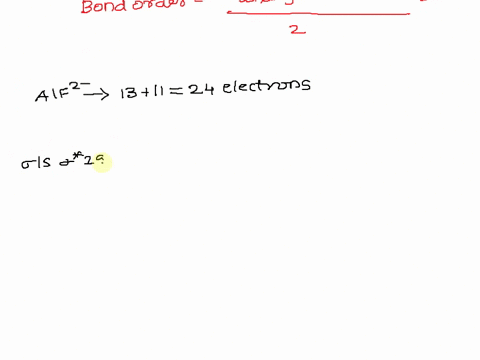 Bond order =
2
AlF²⁻ → 13+11 = 24 electrons
σ1s σ*2s